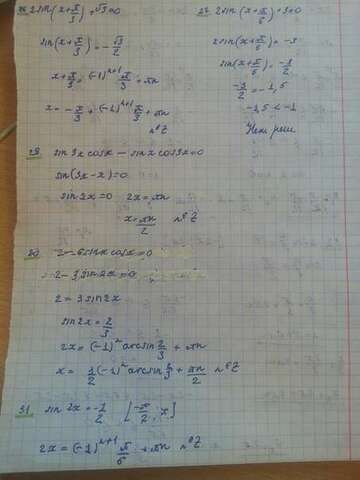 26. 2sin(x+π/3)+√3=0
sin(x+π/3)=-√3/2
x+π/3=(-1)^{n+1} π/3+πn
x=-π/3+(-1)^{n+1} π/3+πn
n∈Z
27. 2sin(x+π/6)+3=0
2sin(x+π/6)=-3
sin(x+π/6)=-3/2
-3/2=-1,5
-1,5<-1
Нет реш
29. sin3x cosx - sinx cos3x=0
sin(3x-x)=0
sin2x=0 2x=πn
x=πn/2 n∈Z
30. 2-6sinx cosx=0
2-3sin2x=0
2=3sin2x
sin2x=2/3
2x=(-1)^n arcsin 2/3+πn
x=1/2(-1)^n arcsin 2/3+πn/2 n∈Z
31. sin2x=-1/2 [-π/2;π]
2x=(-1)^{n+1} π/6+πn n∈Z